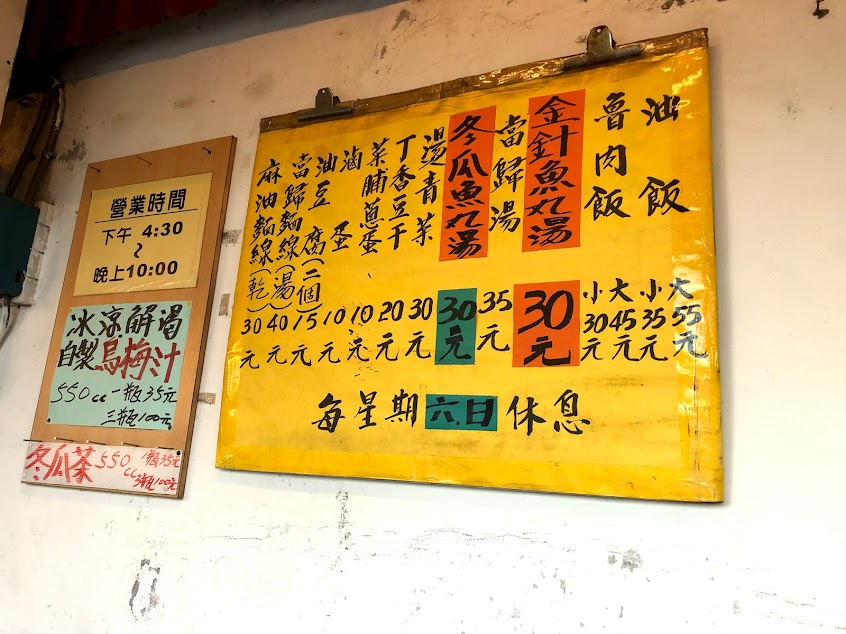 油飯 大55元 小35元
魯肉飯 大45元 小30元
金針魚丸湯 30元
當歸湯 35元
冬瓜魚丸湯 30元
湯青菜 30元
丁香豆干 20元
菜脯蔥蛋 10元
滷蛋 10元
油豆腐(二個) 15元
當歸麵線(湯) 40元
麻油麵線(乾) 30元
每星期六.日休息
營業時間
下午 4:30
~
晚上10:00
冰涼解渴
自製烏梅汁
550cc一瓶35元
三瓶100元
冬瓜茶 550cc 1瓶35元
3瓶100元